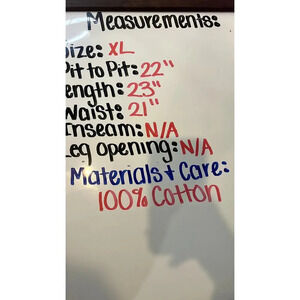 Measurements:
Size: XL
Pit to Pit: 22"
Length: 23"
Waist: 21"
Inseam: N/A
Leg opening: N/A
Materials + Care:
100% Cotton